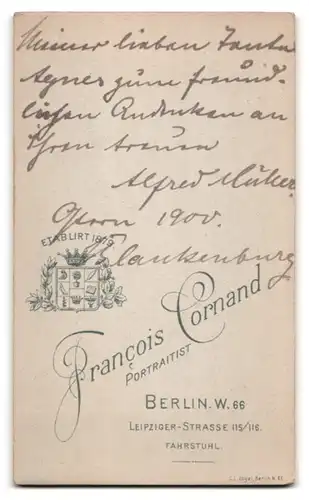 Meiner lieben Tante
Agnes zum freund-
lichen Andenken an
Ihren treuen
Alfred
Ostern 1900.
Blankenburg
ETABLIRT 1879
François Cornand
PORTRAITIST
BERLIN. W. 66
LEIPZIGER-STRASSE 115/116.
FAHRSTUHL.